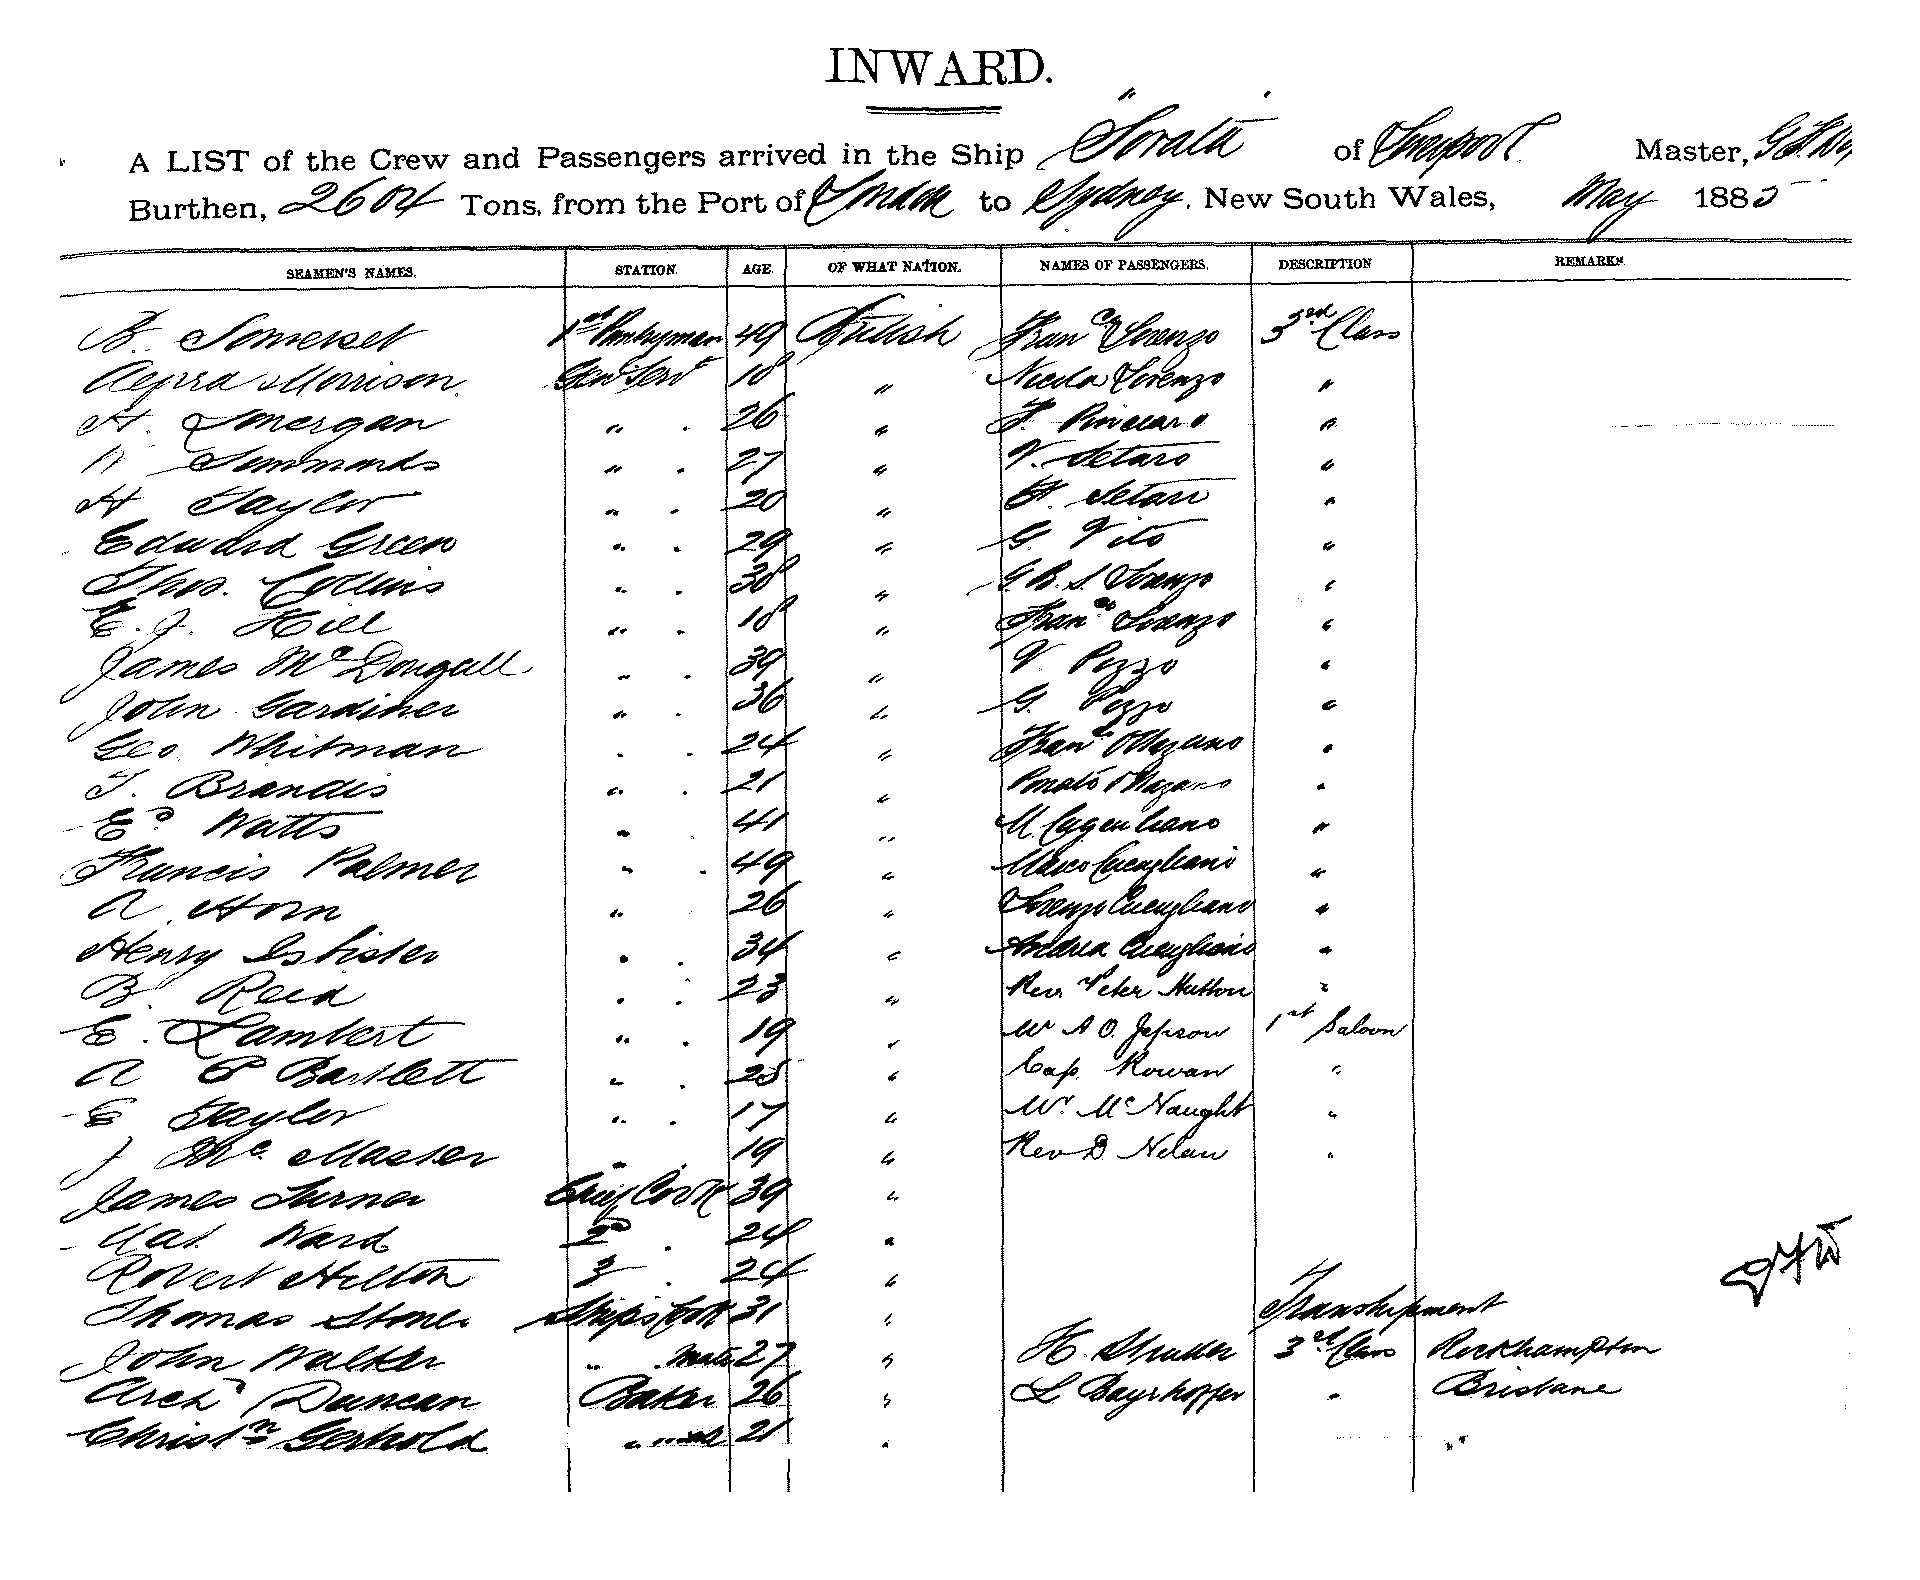 INWARD.
A LIST of the Crew and Passengers arrived in the Ship "Sorata" of Liverpool Master,
Burthen, 2604 Tons, from the Port of London to Sydney, New South Wales, May 1885
SEAMEN'S NAMES. STATION. AGE. OF WHAT NATION. NAMES OF PASSENGERS. DESCRIPTION REMARKS
B. Somerset 1st Pantryman 49 British Franco Lorenzo 3rd Class
Morrison Genl Servt 18 " Nicola Lorenzo "
H. Smergan " . 26 " F. "
Simmonds " . 27 " V. Setaro "
H Taylor " . 20 " F. "
Edward Green " . 29 " G. Vito "
Thos. Collins " . 38 " G. B. S. Lorenzo "
E. J. Hill " . 18 " Franco Lorenzo "
James McDougall " . 39 " V Pozzo "
John Gardiner " . 36 " G. Pozzo "
Geo. Whitman . . 24 " Franco "
T. Brandis " . 21 " Donato "
Ed Watts " . 41 " M. "
Francis Palmer " . 49 " Marco Cucugliano "
A. Horn " 26 " Lorenzo Cucugliano "
Henry Isbister " . 34 " Andrea Cucugliano "
B. Reid . . 23 " Rev. Peter Hutton "
E. Lambert " . 19 " Mr A. O. Jepson 1st Saloon
A P Bartlett " . 25 " Cap. Rowan "
E Taylor " . 17 " Mr. McNaught "
J McMaster " . 19 " Rev D Nelan "
James Turner Chief Cook 39 "
Ward 2nd . 24 "
Robert Hilton 3 . 24 "
Thomas Stones Ships Cook 31 " Transhipment
John Walker " mate 27 " H. Struder 3rd Class Rockhampton
Archd Duncan Baker 26 " L Bayrhoffer " Brisbane
Christn Gerhold " mate 21 "